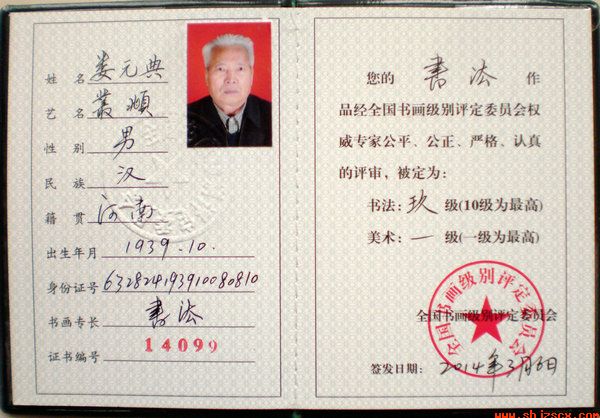 姓名 娄元典
艺名 丛顺
性别 男
民族 汉
籍贯 河南
出生年月 1939.10.
身份证号 632824193910080810
书画专长 書法
证书编号 14099
您的 書法 作
品经全国书画级别评定委员会权
威专家公平、公正、严格、认真
的评审，被定为：
书法：玖 级(10级为最高)
美术：一 级(一级为最高)
全国书画级别评定委员会
全国书画级别评定委员会
签发日期： 2014年3月6日
www.shjzscx.com